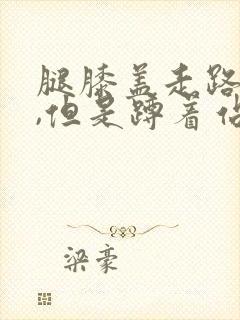 腿膝盖走路
,但是蹲着
梁豪